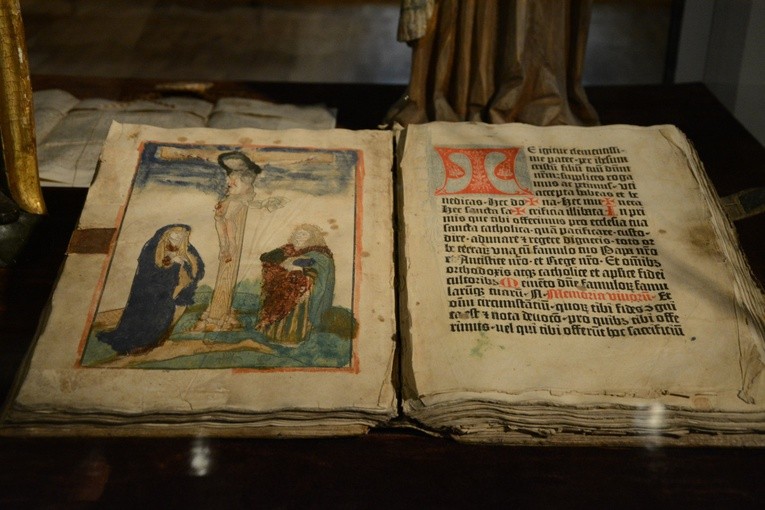 TE igitur clementissi-
me pater: per iesum
cristũ filiũ tuũ dñm
nr̃m: supplices roga
mus ac petimus. Vti
accepta habeas et be
nedicas. Hec ✠ do na. Hec ✠ mu ✠ nera
Hec sancta ✠ sa crificia illibata. In pri
mis que tibi offerimus pro ecclesia tua
sancta catholica. quã pacificare. custo-
dire. adunare et regere digneris. toto or
be terrarũ. vna cũ famulo tuo Papa nr̃o
Et Antistite nr̃o. et Rege nr̃o. Et omĩbus
orthodoxis atqʒ catholice et aplice fidei
cultoribꝰ. Memẽto dñe famuloꝝ famu
larũqʒ tuarũ. N. Memoria viuorũ. Et
oĩm circumstãtiũ. quoꝝ tibi fides cogni
ta est et nota deuotio. pro quibꝰ tibi offe
rimus. vel qui tibi offerũt hoc sacrificiũ